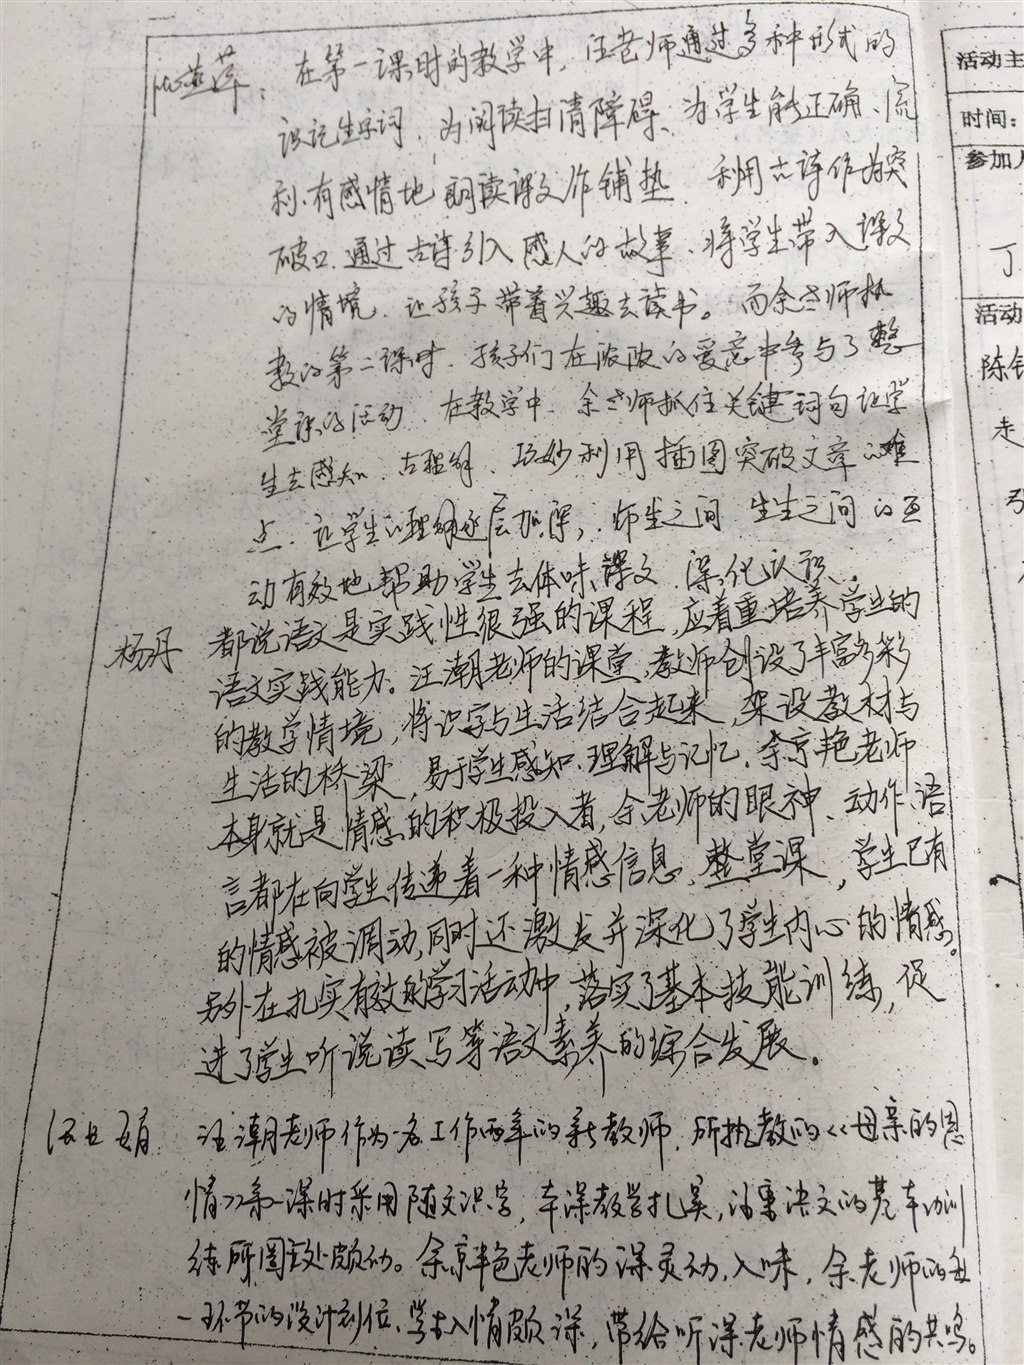 燕萍：在第一课时的教学中，汪老师通过多种形式的
识记生字词，为阅读扫清障碍、为学生能正确、流
利、有感情地朗读课文作铺垫，利用古诗作为突
破口，通过古诗引入感人的故事，将学生带入课文
的情境，让孩子带着兴趣去读书。而余老师执
教的第二课时，孩子们在浓浓的爱意中参与了整
堂课的活动，在教学中，余老师抓住关键词句让学
生去感知、去理解，巧妙利用插图突破文章的难
点，让学生的理解逐层加深，师生之间 生生之间的互
动有效地帮助学生去体味课文 深化认识。
杨丹 都说语文是实践性很强的课程，应着重培养学生的
语文实践能力。汪潮老师的课堂，教师创设了丰富多彩
的教学情境，将识字与生活结合起来，架设教材与
生活的桥梁，易于学生感知、理解与记忆，余京艳老师
本身就是情感的积极投入者，余老师的眼神、动作、语
言都在向学生传递着一种情感信息，整堂课，学生已有
的情感被调动，同时还激发并深化了学生内心的情感。
另外在扎实有效的学习活动中，落实了基本技能训练，促
进了学生听说读写等语文素养的综合发展。
汪潮老师作为一名工作两年的新教师，所执教的《母亲的恩
情》第一课时采用随文识字，本课教学扎实，注重语文的基本功训
练，所图之处颇功。余京艳老师的课灵动，入味，余老师的每
一环节的设计到位，学生入情颇深，带给听课老师情感的共鸣。
活动主
时间：
参加人
丁
活动
陈